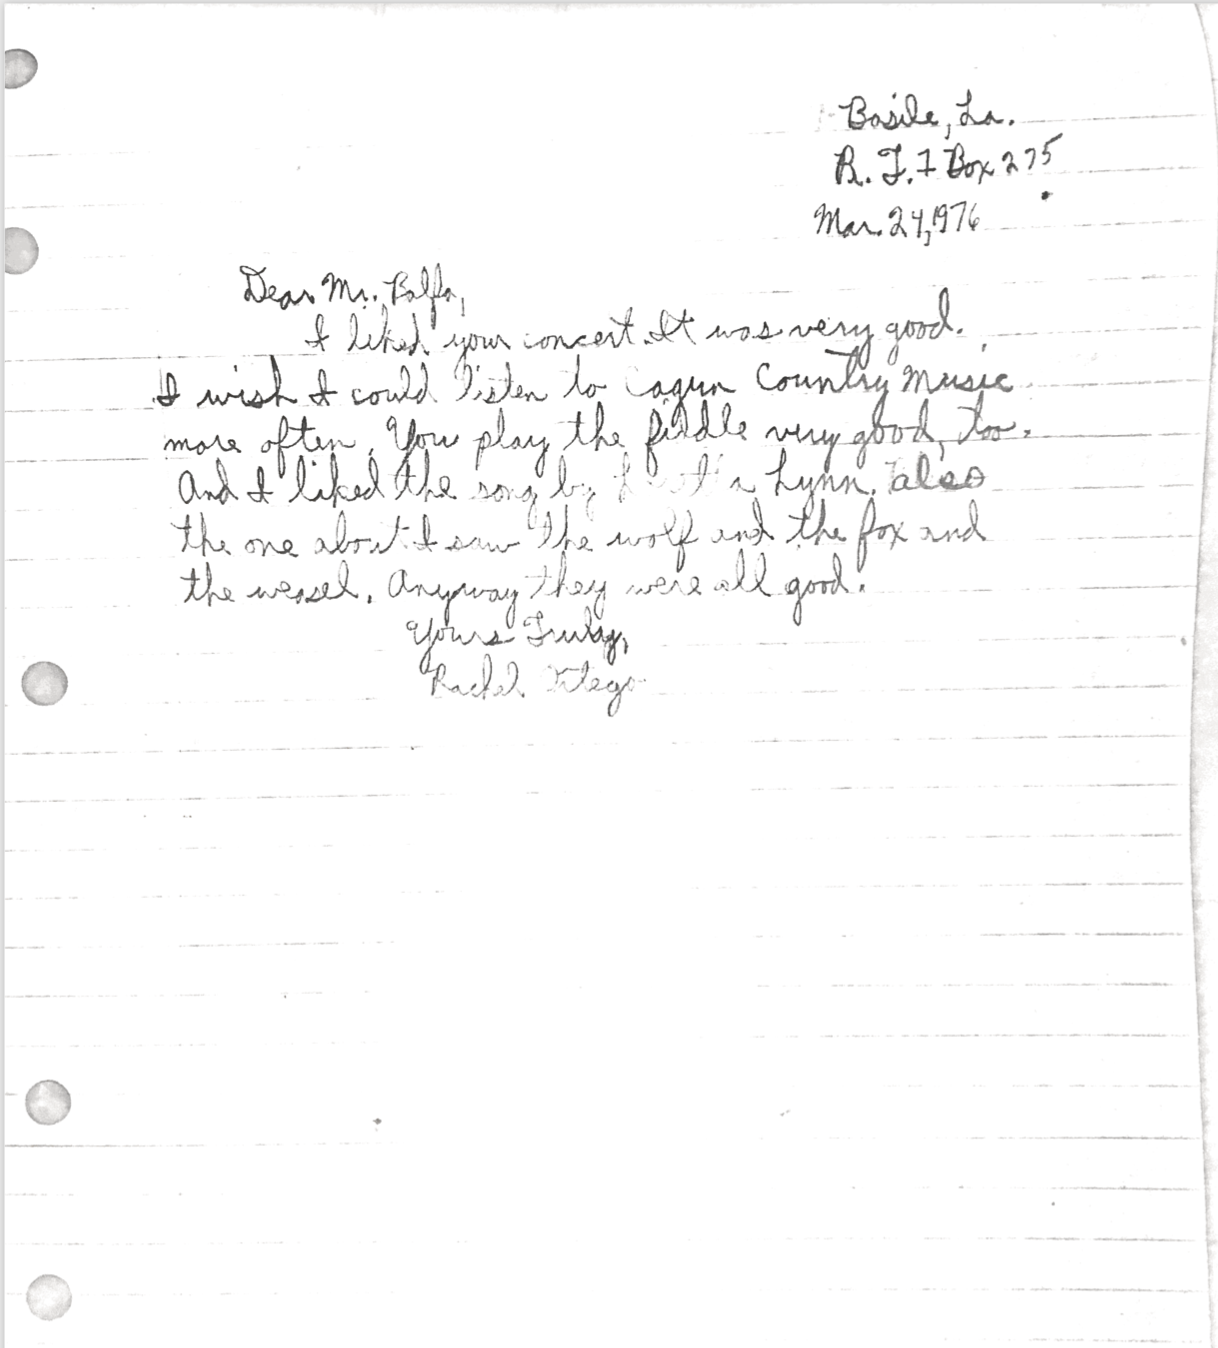 Basile, La.
R. T. 1 Box 275
Mar. 24, 1976
Dear Mr. Balfa,
I liked your concert. It was very good.
I wish I could listen to Cagun Country Music
more often. You play the fiddle very good, too.
And I liked the song by Lynn. also
the one about I saw the wolf and the fox and
the weasel. Anyway they were all good.
Yours Truly,
Rachel